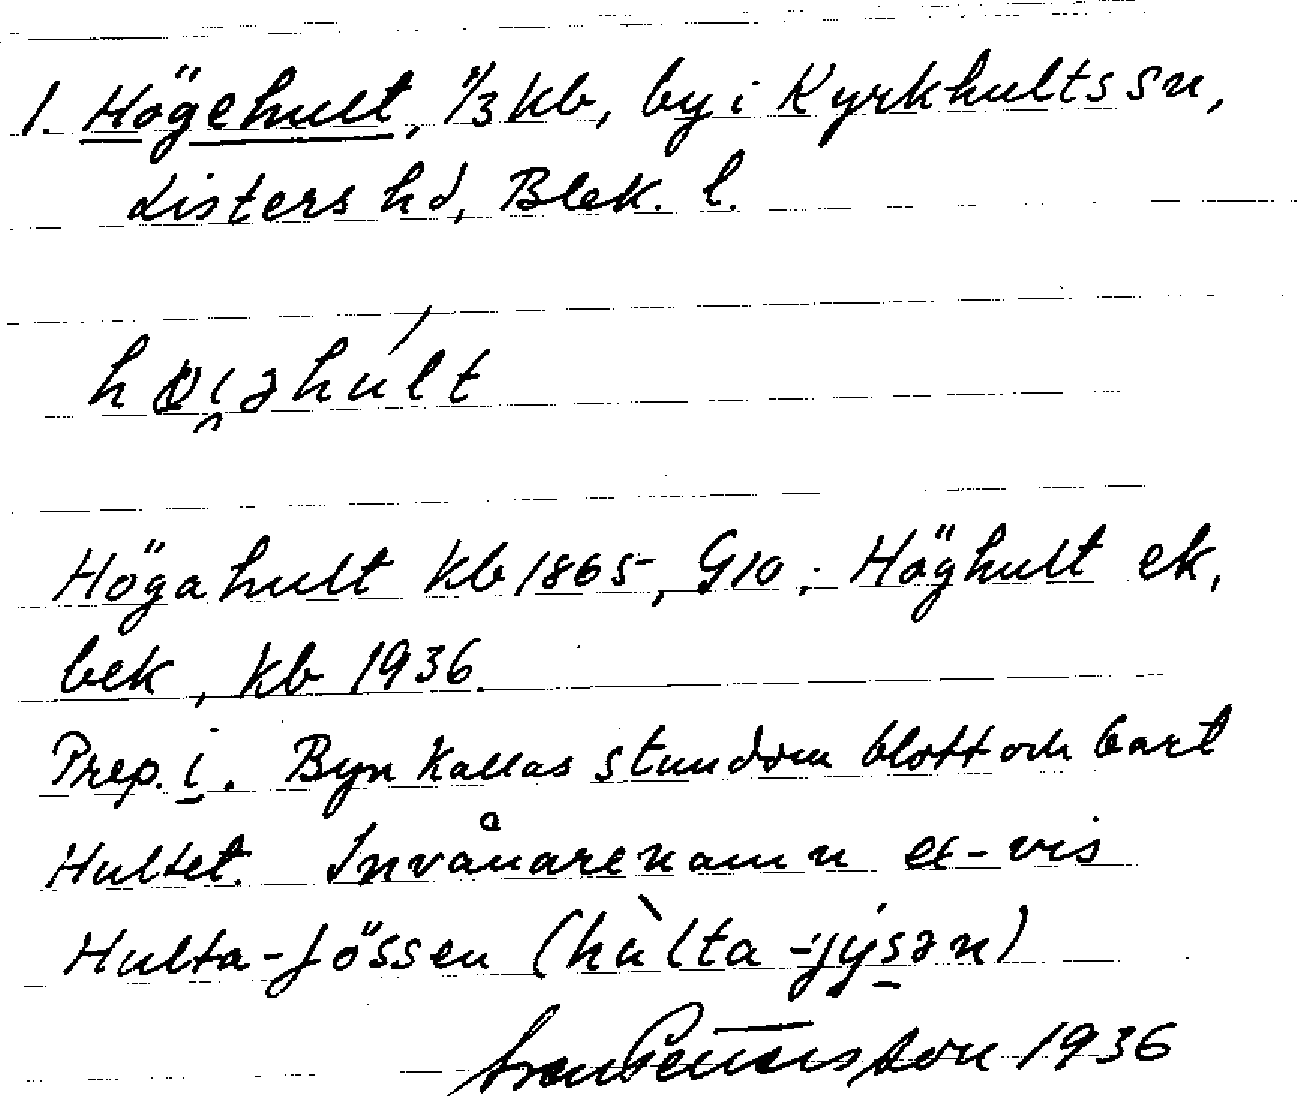 1. Högehult, 1/3 kb, by i Kyrkhults sn,
Listers hd, Blek. l.
Högahult kb 1865, G10; Höghult ek,
bek, kb 1936.
Prep. i. Byn kallas stundom blott och bart
Hultet. Invånarenamn ex-vis
Hulta-Jössen (hùlta-jysən)
1936